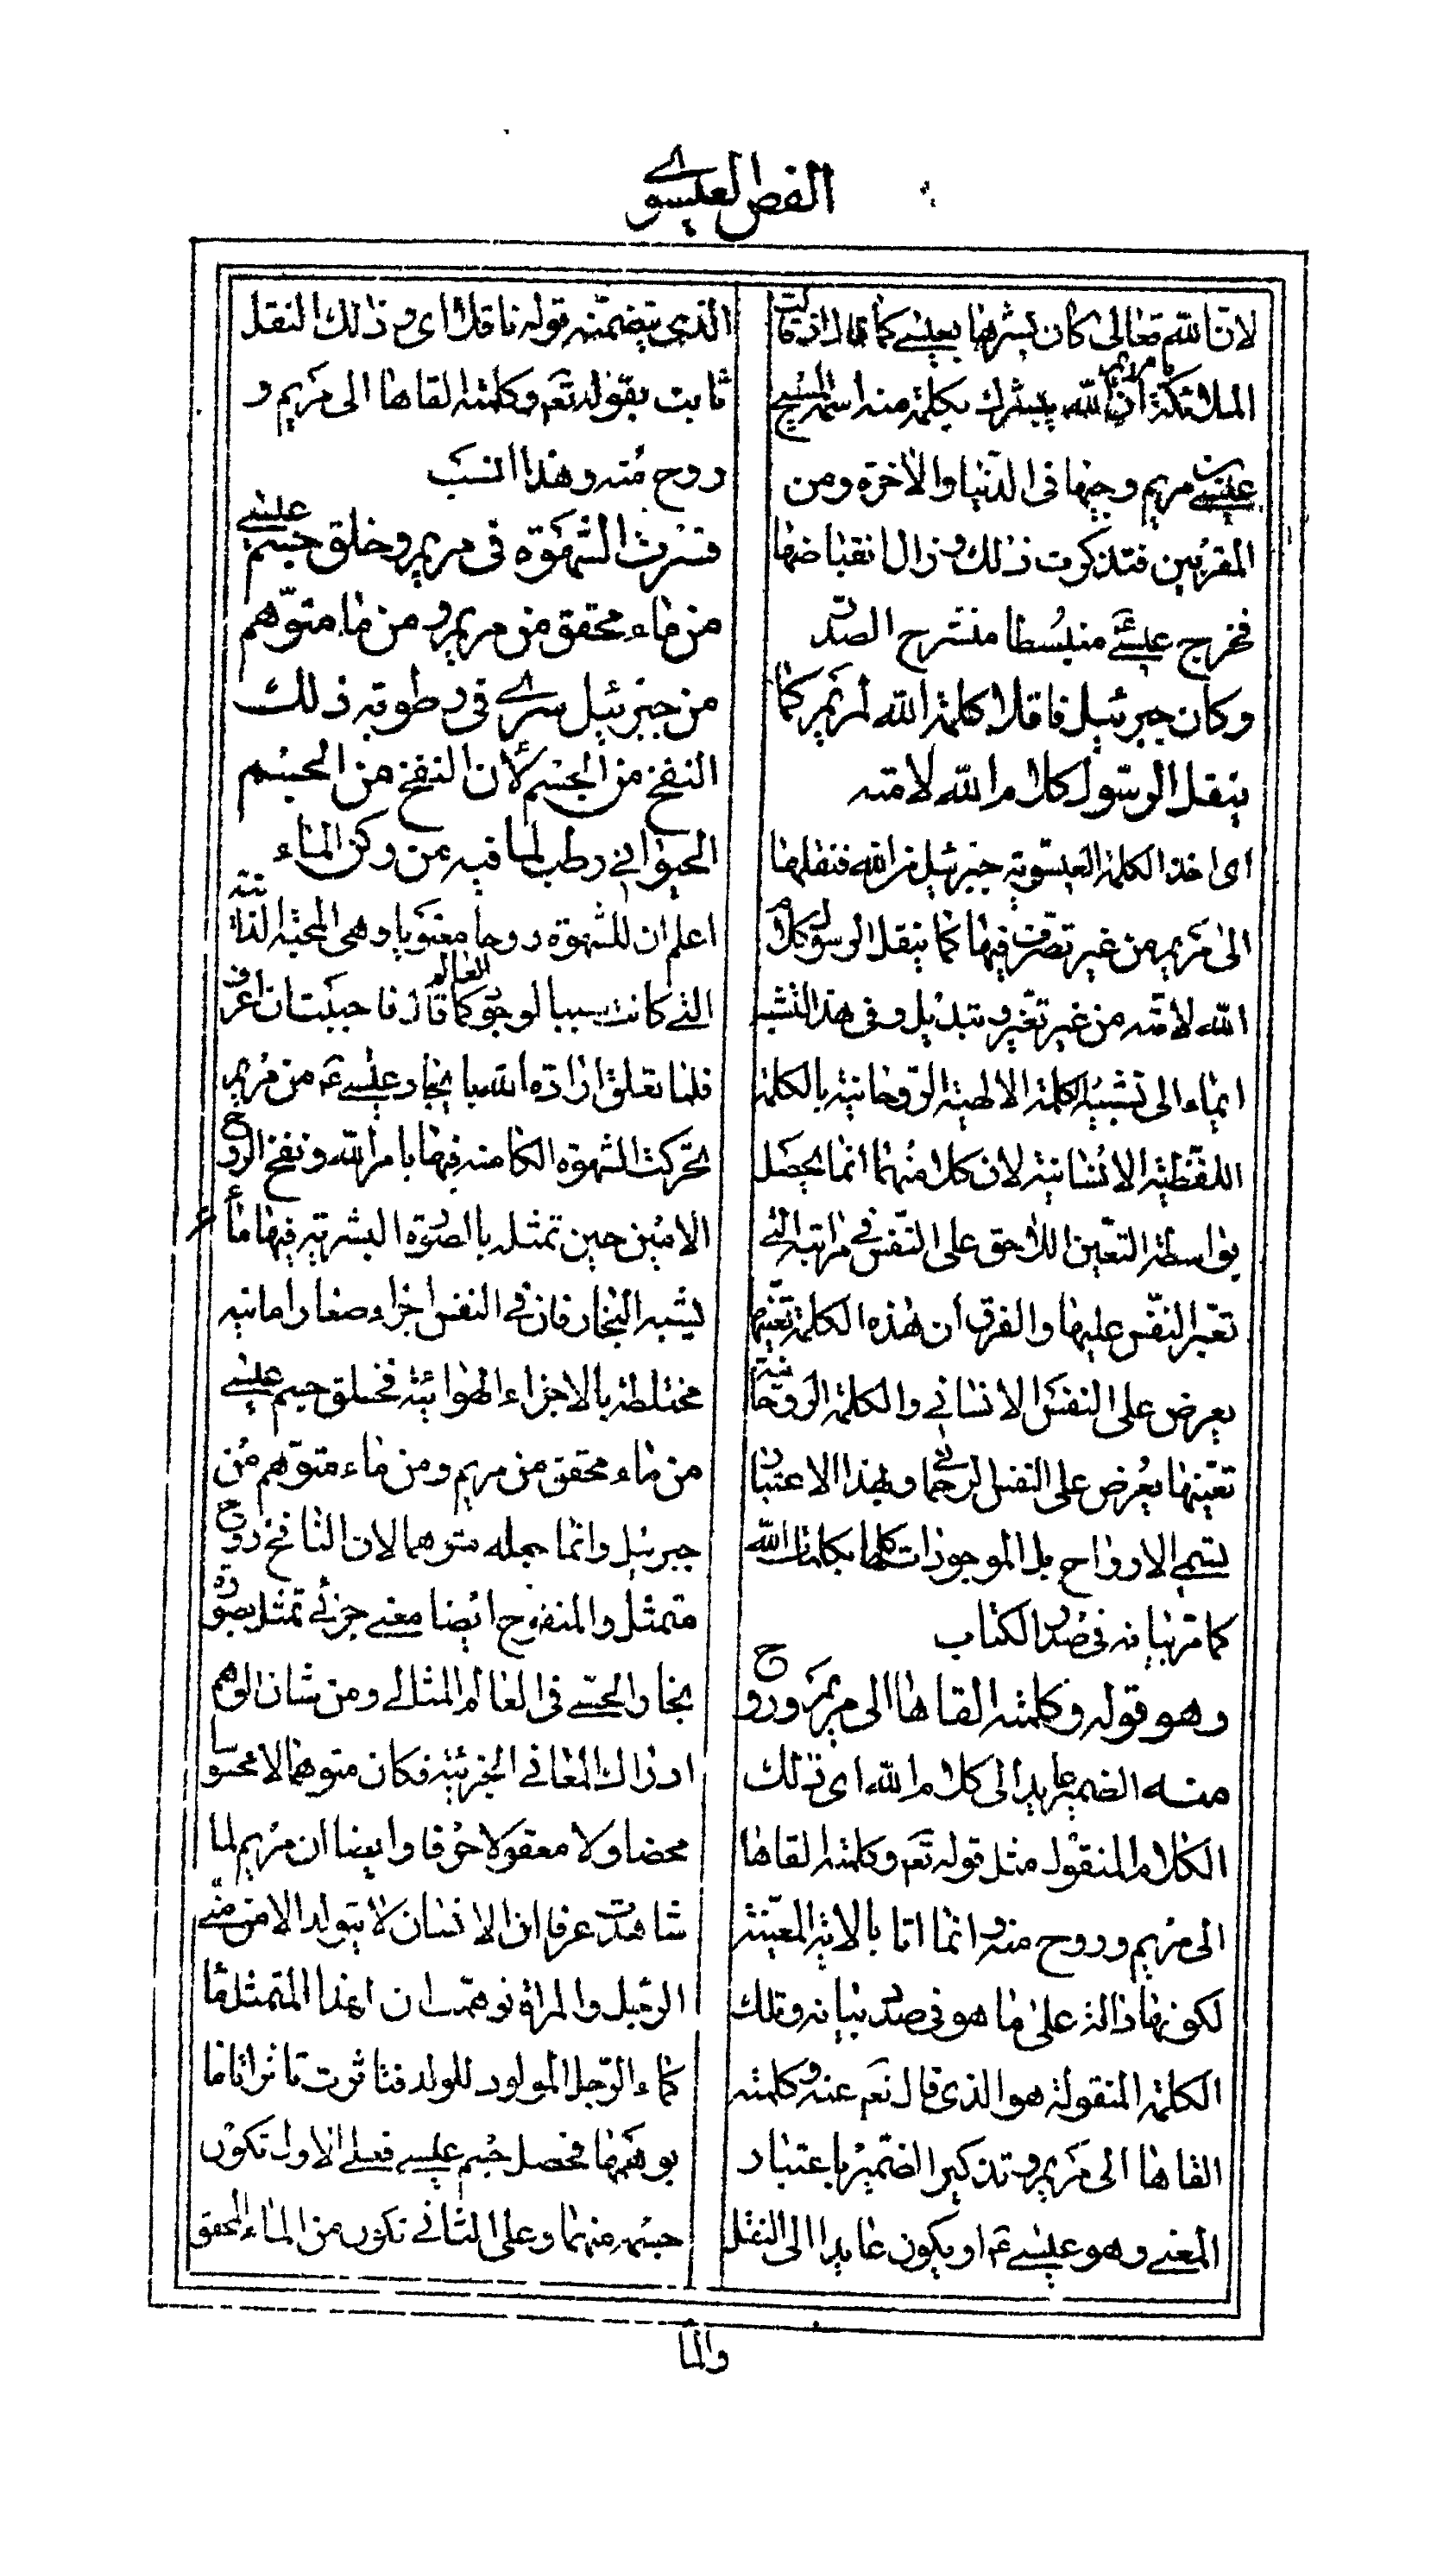 الفص العيسوي
لان الله تعالى كان بشرها بعيسى كما قال اذ قالت
الملائكة يا مريم ان الله يبشرك بكلمة منه اسمه المسيح
عيسى بن مريم وجيها فى الدنيا والاخرة ومن
المقربين فتذكرت ذلك وزال انقباضها
فخرج عيسى منبسطا منشرح الصدر
وكان جبرئيل ناقلا كلمة الله لمريم كما
ينقل الرسول كلام الله لامته
اى اخذ الكلمة العيسوية جبرئيل من الله فنقلها
الى مريم من غير تصرف فيها كما ينقل الرسول كلام
الله لامته من غير تغير وتبديل وفى هذا التشبيه
ايماء الى تشبيه الكلمة الالهية الروحانية بالكلمة
اللفظية الانسانية لان كلا منهما انما يحصل
بواسطة التعين اللاحق على النفس فى مراتبه التى
تعبر النفس عليها والفرق ان هذه الكلمة تعينها
يعرض على النفس الانسانى والكلمة الروحانية
تعينها يعرض على النفس الرحمانى وبهذا الاعتبار
يسمى الارواح بل الموجودات كلها بكلمات الله
كما مر بيانه فى صدر الكتاب
وهو قوله وكلمته القاها الى مريم وروح
منه الضمير عايد الى كلام الله اى ذلك
الكلام المنقول مثل قوله تعم وكلمته القاها
الى مريم وروح منه وانما اتا بالاية المعينة
لكونها دالة على ما هو فى صدد بيانه وتلك
الكلمة المنقولة هو الذى قال تعم عنه وكلمته
القاها الى مريم وتذكير الضمير باعتبار
المعنى وهو عيسى ع او يكون عايدا الى النقل
الذى يتضمنه قوله ناقلا اى وذلك النقل
ثابت بقوله تعم وكلمته القاها الى مريم و
روح منه وهذا انسب
فسرت الشهوة فى مريم وخلق جسم عيسى
من ماء محقق من مريم ومن ماء متوهم
من جبرئيل سرى فى رطوبة ذلك
النفخ من الجسم لان النفخ من الجسم
الحيوانى رطب لما فيه من ركن الماء
اعلم ان للشهوة روحا معنويا وهى المحبة الذاتية
التى كانت سببا لوجود العالم كما قال فاحببت ان اعرف
فلما تعلق ارادة الله بايجاد عيسى ع من مريم
تحركت الشهوة الكامنة فيها بامر الله ونفخ الروح
الامين حين تمثل بالصورة البشرية فيها ماء
يشبه البخار فان فى النفس اجزاء صغارا مائية
مختلطة بالاجزاء الهوائية فخلق جسم عيسى
من ماء محقق من مريم ومن ماء متوهم من
جبرئيل وانما جعله متوهما لان النافخ روح
متمثل والمنفوخ ايضا معنى جزئى تمثل بصورة
بخار الحسى فى العالم المثالى ومن شان الوهم
ادراك المعانى الجزئية فكان متوهما لا محسوسا
محضا ولا معقولا صرفا وايضا ان مريم لما
شاهدت عرفا ان الانسان لا يتولد الا من منى
الرجل والمراة توهمت ان هذا المتمثل ماء
كماء الرجل المولود للولد فتاثرت تاثرا تاما
بوهمها فحصل جسم عيسى فعلى الاول تكون
جسمه منهما وعلى الثانى تكون من الماء المحقق
والما